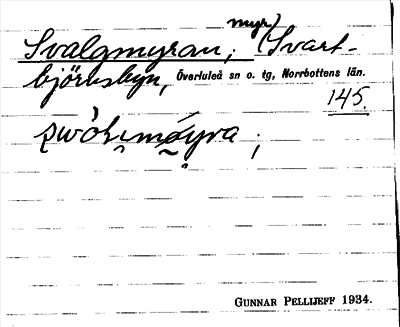 Svalgmyran; myr, (Svart-
björnsbyn, Överluleå sn o. tg, Norrbottens län.
145.
GUNNAR PELLIJEFF 1934.